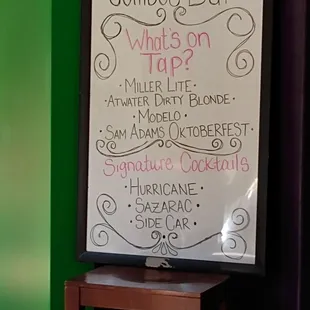 What's on
Tap?
· Miller Lite ·
· Atwater Dirty Blonde ·
· Modelo ·
· Sam Adams Oktoberfest ·
Signature Cocktails
· Hurricane ·
· Sazarac ·
· Side Car ·